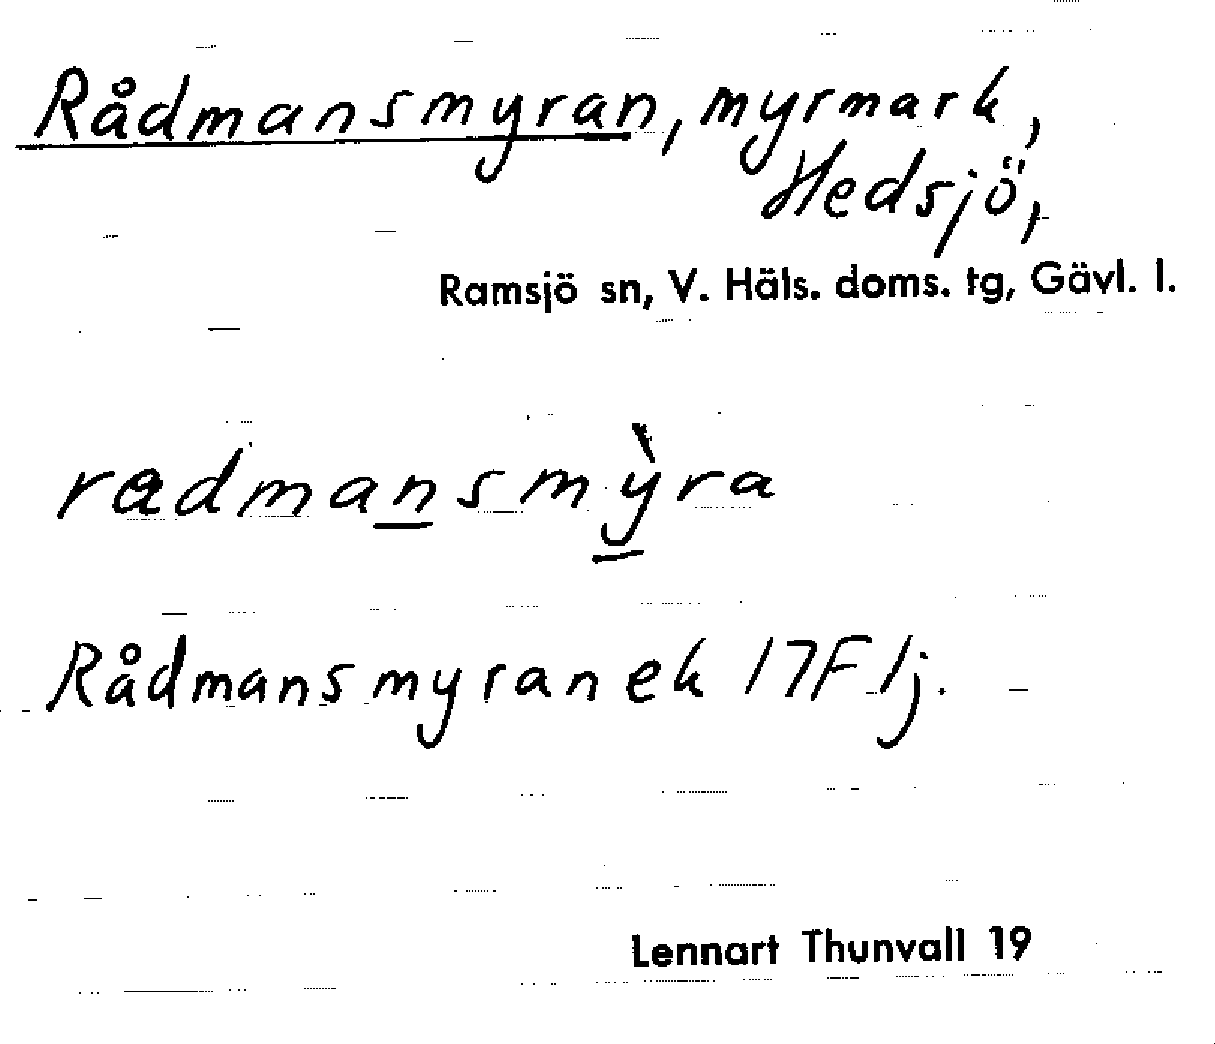 Rådmansmyran, myrmark,
Hedsjö,
Ramsjö sn, V. Häls. doms. tg, Gävl. l.
radmansmỳra
Rådmansmyran ek 17F 1j.
Lennart Thunvall 19